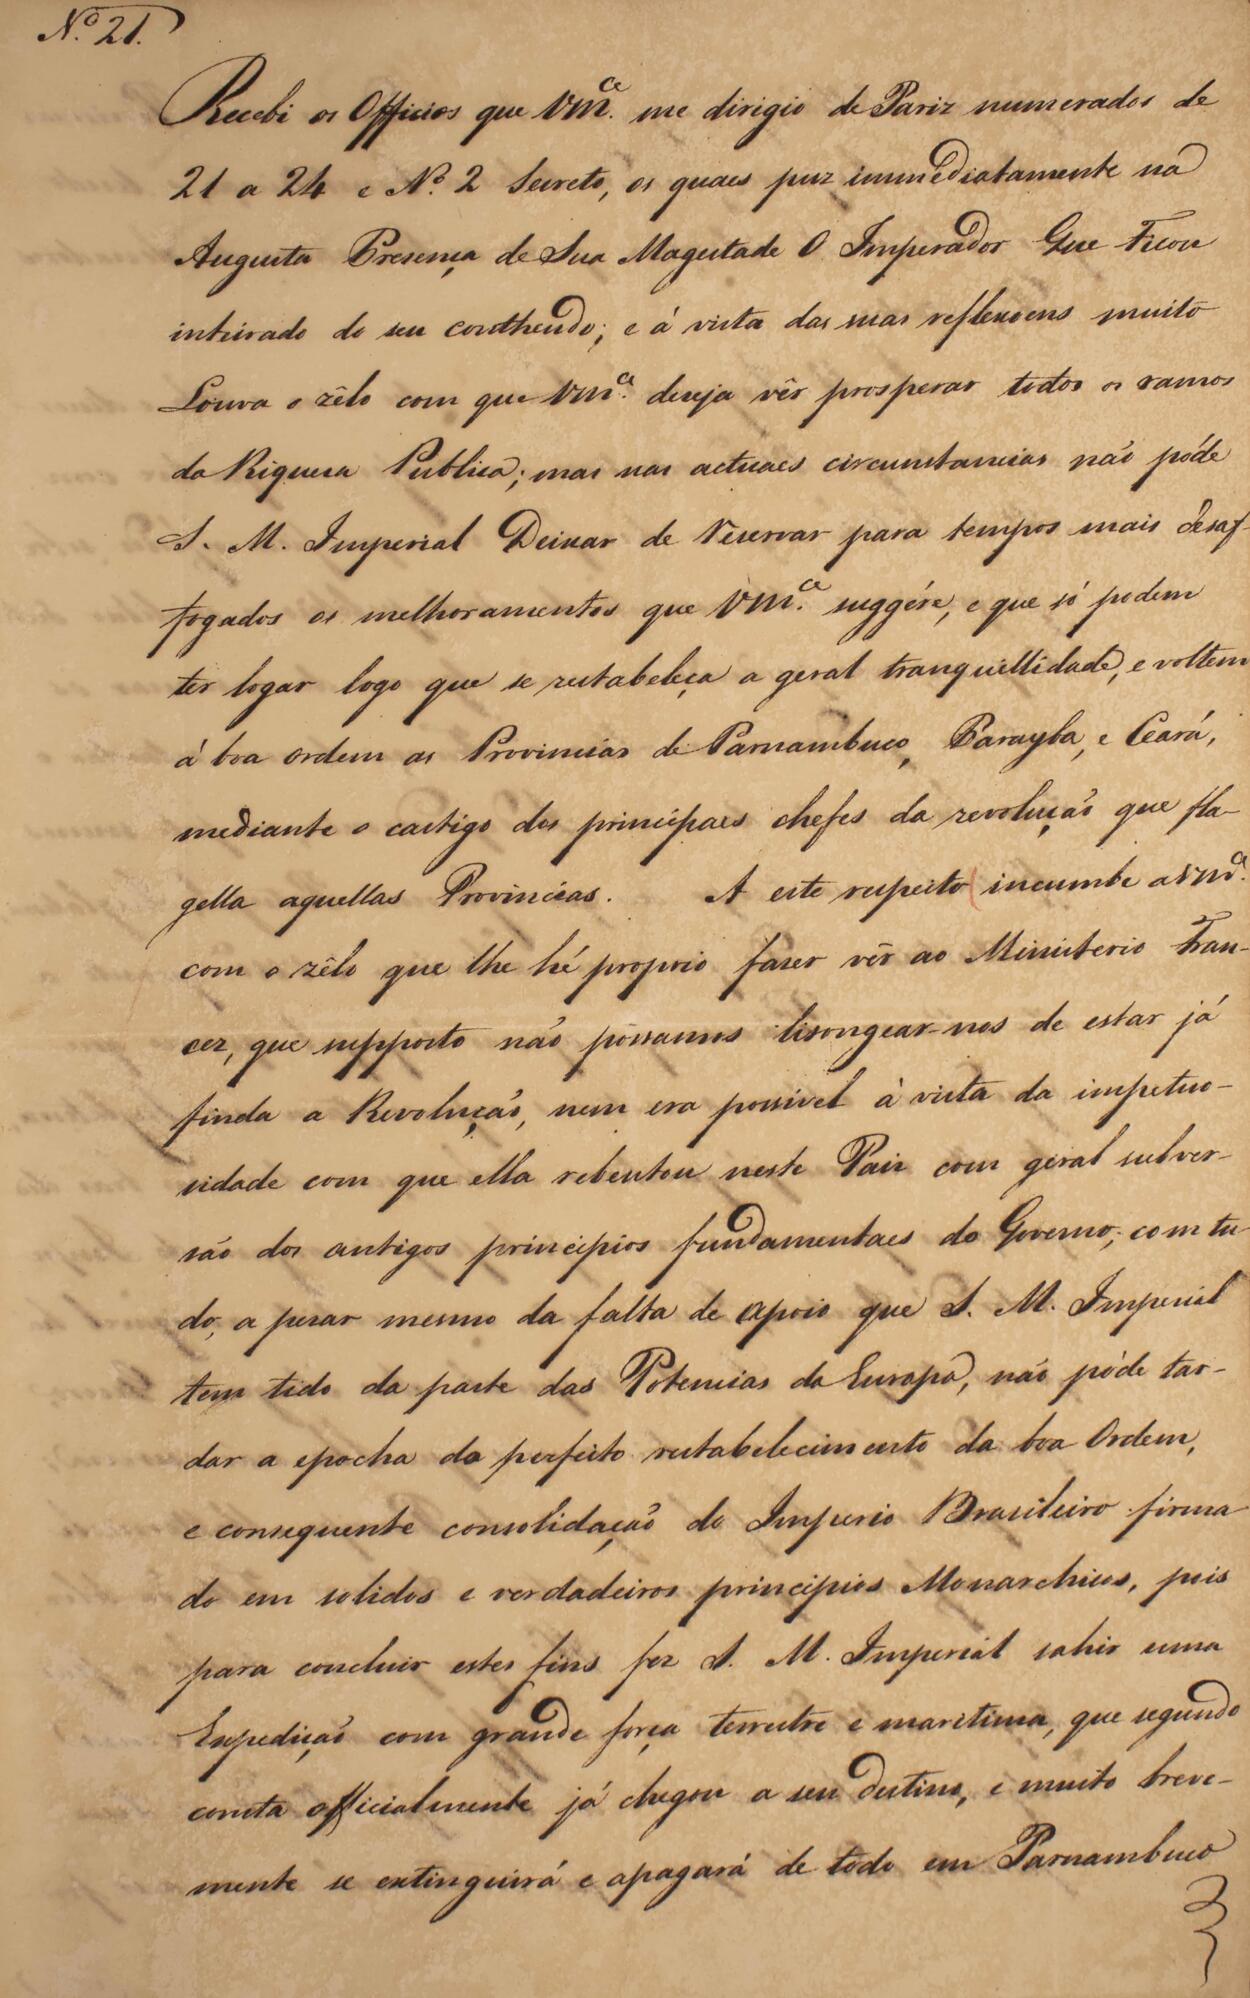 Nº 21.
Recebi os Officios que Vmce. me dirigio de Pariz numerados de
21 a 24 e Nº 2 Secreto, os quaes puz immediatamente na
Augusta Presença de Sua Magestade O Imperador Que Ficou
inteirado do seu contheudo; e á vista das suas reflexoens muito
Louva o zêlo com que Vmce. deseja vêr prosperar todos os ramos
da Riquesa Publica; mas nas actuaes circumstancias não póde
S. M. Imperial Deixar de Reservar para tempos mais desaf-
fogados os melhoramentos que Vmce. suggére, e que só podem
ter logar logo que se restabeleça a geral tranquillidade, e voltem
á boa ordem as Provincias de Parnambuco, Parayba, e Ceará,
mediante o castigo dos principaes chefes da revolução que fla-
gella aquellas Provincias. A este respeito incumbe a Vmce.
com o zêlo que lhe hé proprio fazer vêr ao Ministerio Fran-
cez, que supposto não possamos lisongear-nos de estar já
finda a Revolução, nem era possivel á vista da impetuo-
sidade com que ella rebentou neste Paiz com geral subver-
são dos antigos principios fundamentaes do Governo; com tu
do, a pesar mesmo da falta de apoio que S. M. Imperial
tem tido da parte das Potencias da Europa, não póde tar-
dar a epocha do perfeito restabelecimento da boa Ordem,
e consequente consolidação do Imperio Brasileiro firma
do em solidos e verdadeiros principios Monarchicos, pois
para concluir estes fins fez S. M. Imperial sahir uma
Expedição com grande força terrestre e maritima, que segundo
consta officialmente já chegou a seu destino, e muito breve-
mente se extinguirá e apagará de todo em Parnambuco